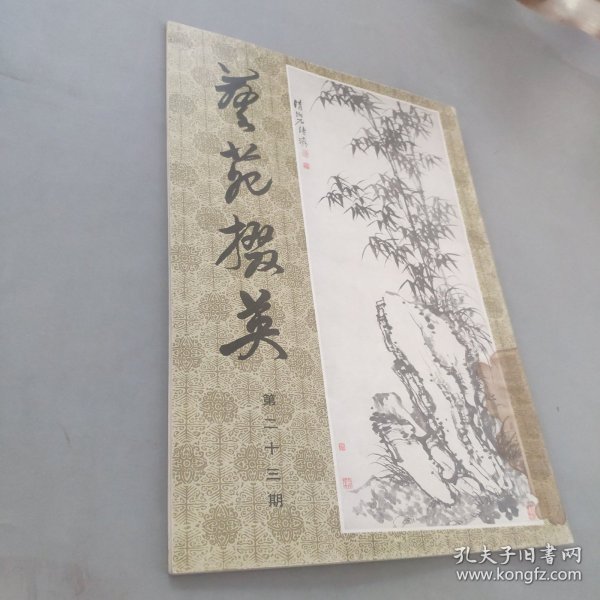 藝苑掇英
第二十三期
孔夫子旧书网
www.kongfz.com